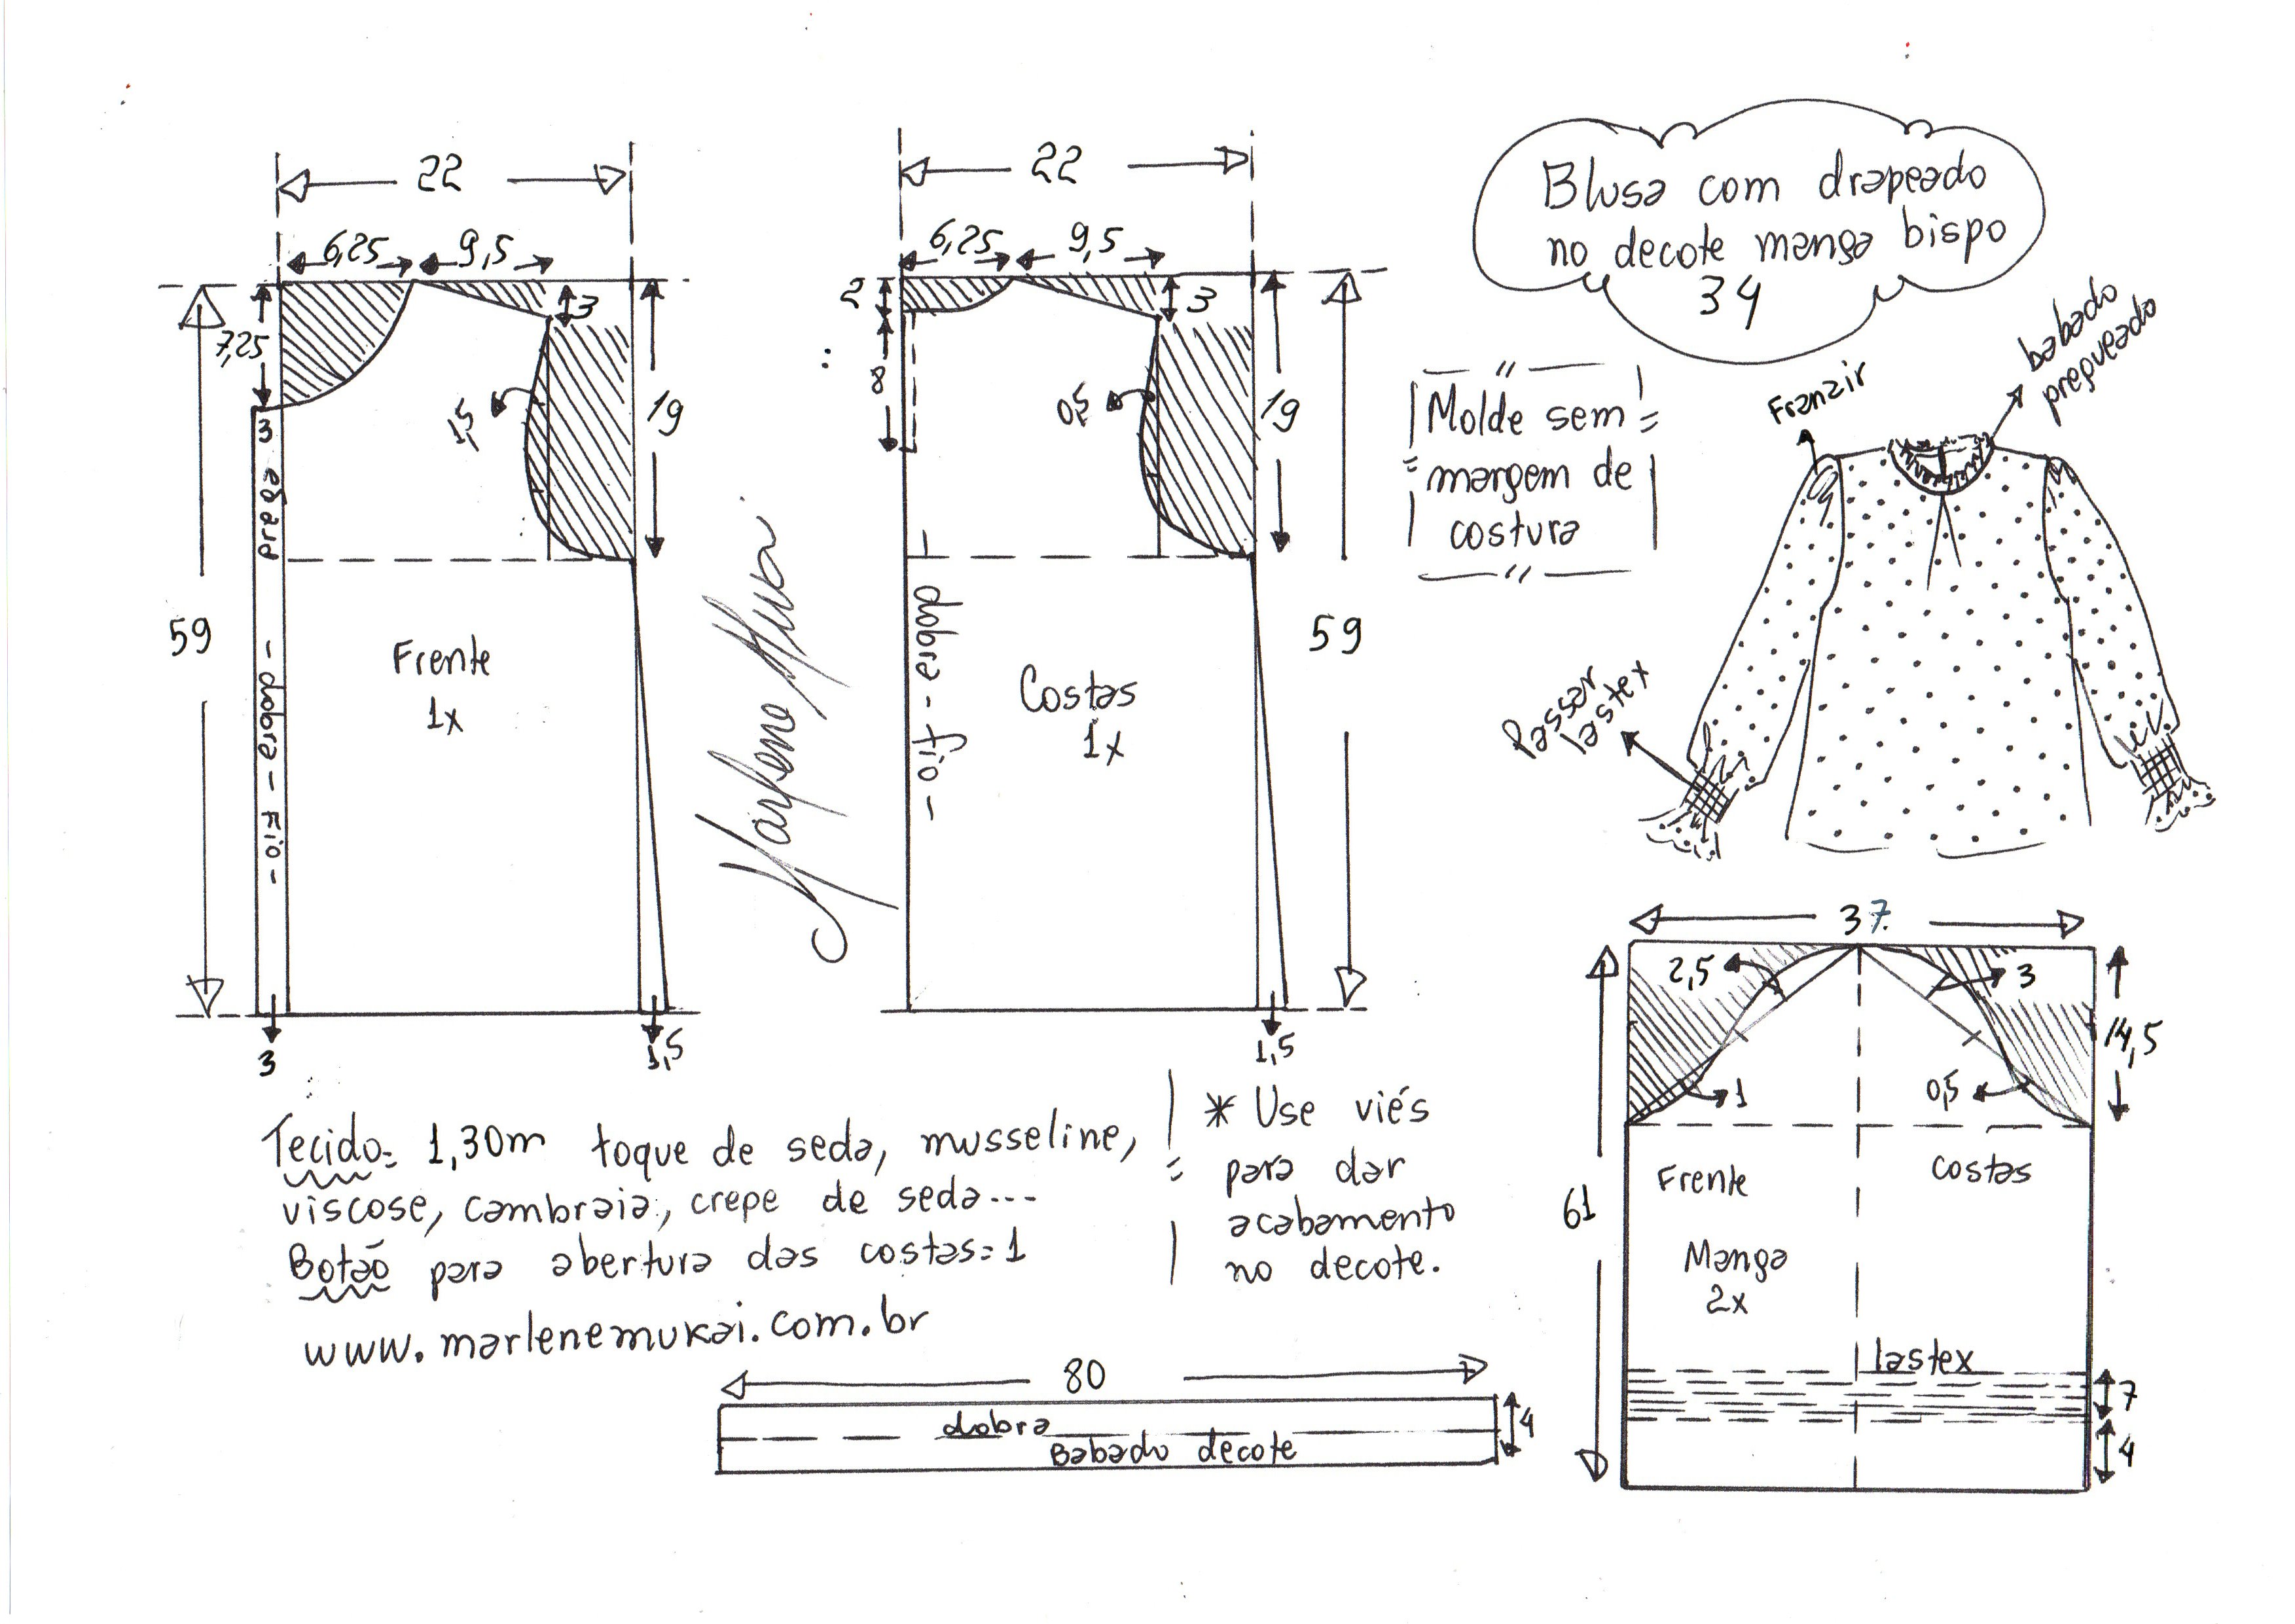 22
6,25 9,5
7,25
3
3
prega
1,5
19
59
- dobra - Fio -
Frente
1x
3
1,5
22
6,25 9,5
2
3
8
0,5
19
59
dobra - fio -
Costas
1x
1,5
Marlene Mukai
Blusa com drapeado
no decote manga bispo
34
Molde sem
margem de
costura
babado
pregueado
Franzir
Passar
lastex
37
2,5
3
14,5
1
0,5
61
Frente
costas
Manga
2x
lastex
7
4
Tecido = 1,30m toque de seda, musseline,
viscose, cambraia, crepe de seda...
Botão para abertura das costas = 1
www.marlenemukai.com.br
* Use viés
para dar
acabamento
no decote.
80
dobra
Babado decote
4